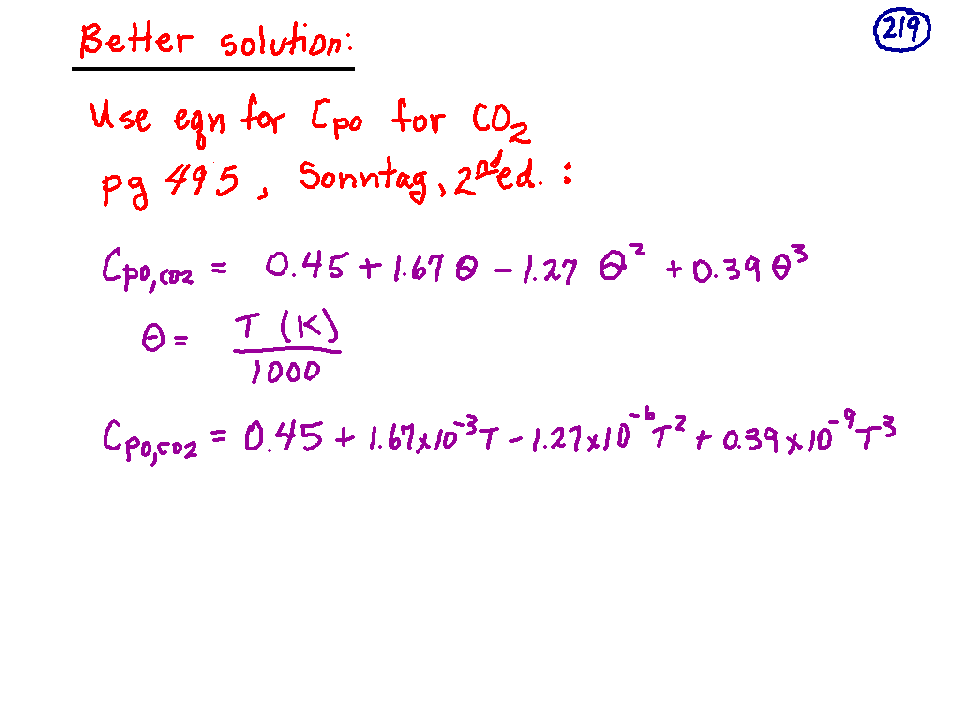 Better solution:
219
Use eqn for Cpo for CO2
pg 495, Sonntag, 2nd ed. :
Cpo,co2 = 0.45 + 1.67 θ - 1.27 θ² + 0.39 θ³
θ = T (K)
1000
Cpo,co2 = 0.45 + 1.67x10⁻³T - 1.27x10⁻⁶T² + 0.39x10⁻⁹T³